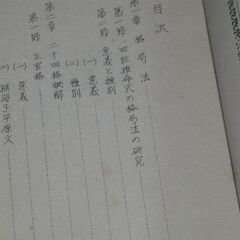 目次
第一章 格局法
第一節 四柱推命式の格局法の研究
第二節 意義と種別
(一) 意義
(二) 種別
第二章 二十四格訣解
第一節 正官格
(一) 意義
(二) 淵海子平原文